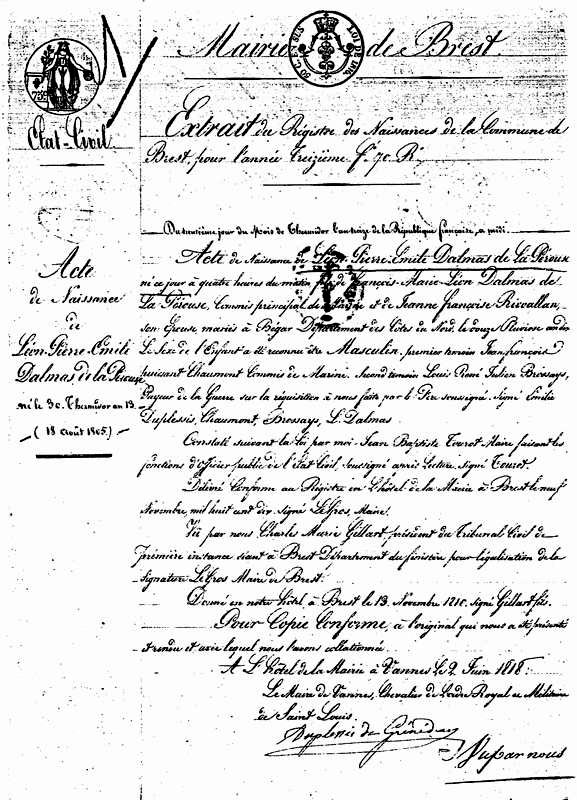 Mairie de Brest
50 C. EN SUS
LOI DE 1816
Etat-Civil
Extrait du Régistre des Naissances de la Commune de
Brest, pour l'année Treizième f° 70. R°
Du trentième jour du Mois de Thermidor l'an treize de la République française, a midi.
Acte de Naissance de Léon Pierre Emile Dalmas de la Pérouse
né ce jour à quatre heures du matin, fils de François Marie Léon Dalmas de
La Pérouse, Commis principal de Marine et de Jeanne françoise Rivoallan,
son Epouse mariés à Bégar Département des Côtes du Nord, le douze Pluviose an dix
Le Sexe de l'Enfant a été reconnu être Masculin, premier temoin Jean françois
puissant Chaumont Commis de Marine. Second temoin Louis René Julien Brossays,
Payeur de la Guerre sur la réquisition à nous faite par le Père soussigné. Signé Emilie
Duplessis, Chaumont, Brossays, L. Dalmas.
Constaté suivant la Loi par moi Jean Baptiste Tourot Maire faisant les
fonctions d'Officier public de l'Etat Civil, soussigné après Lecture. Signé Tourot.
Délivré Conforme au Régistre en L'hôtel de la Mairie à Brest le neuf
Novembre, mil huit cent dix signé LeGros, Maire.
Vu par nous Charles Marie Gillart, président du Tribunal Civil de
première instance séant à Brest Département du finistère pour légalisation de la
signature LeGros Maire de Brest.
Donné en notre hôtel, à Brest le 13 Novembre 1810. signé Gillart fils.
Pour Copie Conforme, à l'original qui nous a été présenté
et rendu et avec lequel nous l'avons collationnée
A L'hôtel de la Mairie à Vannes le 2 Juin 1818.
Le Maire de Vannes, Chevalier de l'ordre Royal et Militaire
de Saint Louis.
Duplessis de Grénédan
Vu par nous
Acte
de Naissance
de
Léon-Pierre-Emile
Dalmas de la Pérouse
né le 30 Thermidor an 13
(18 Août 1805)